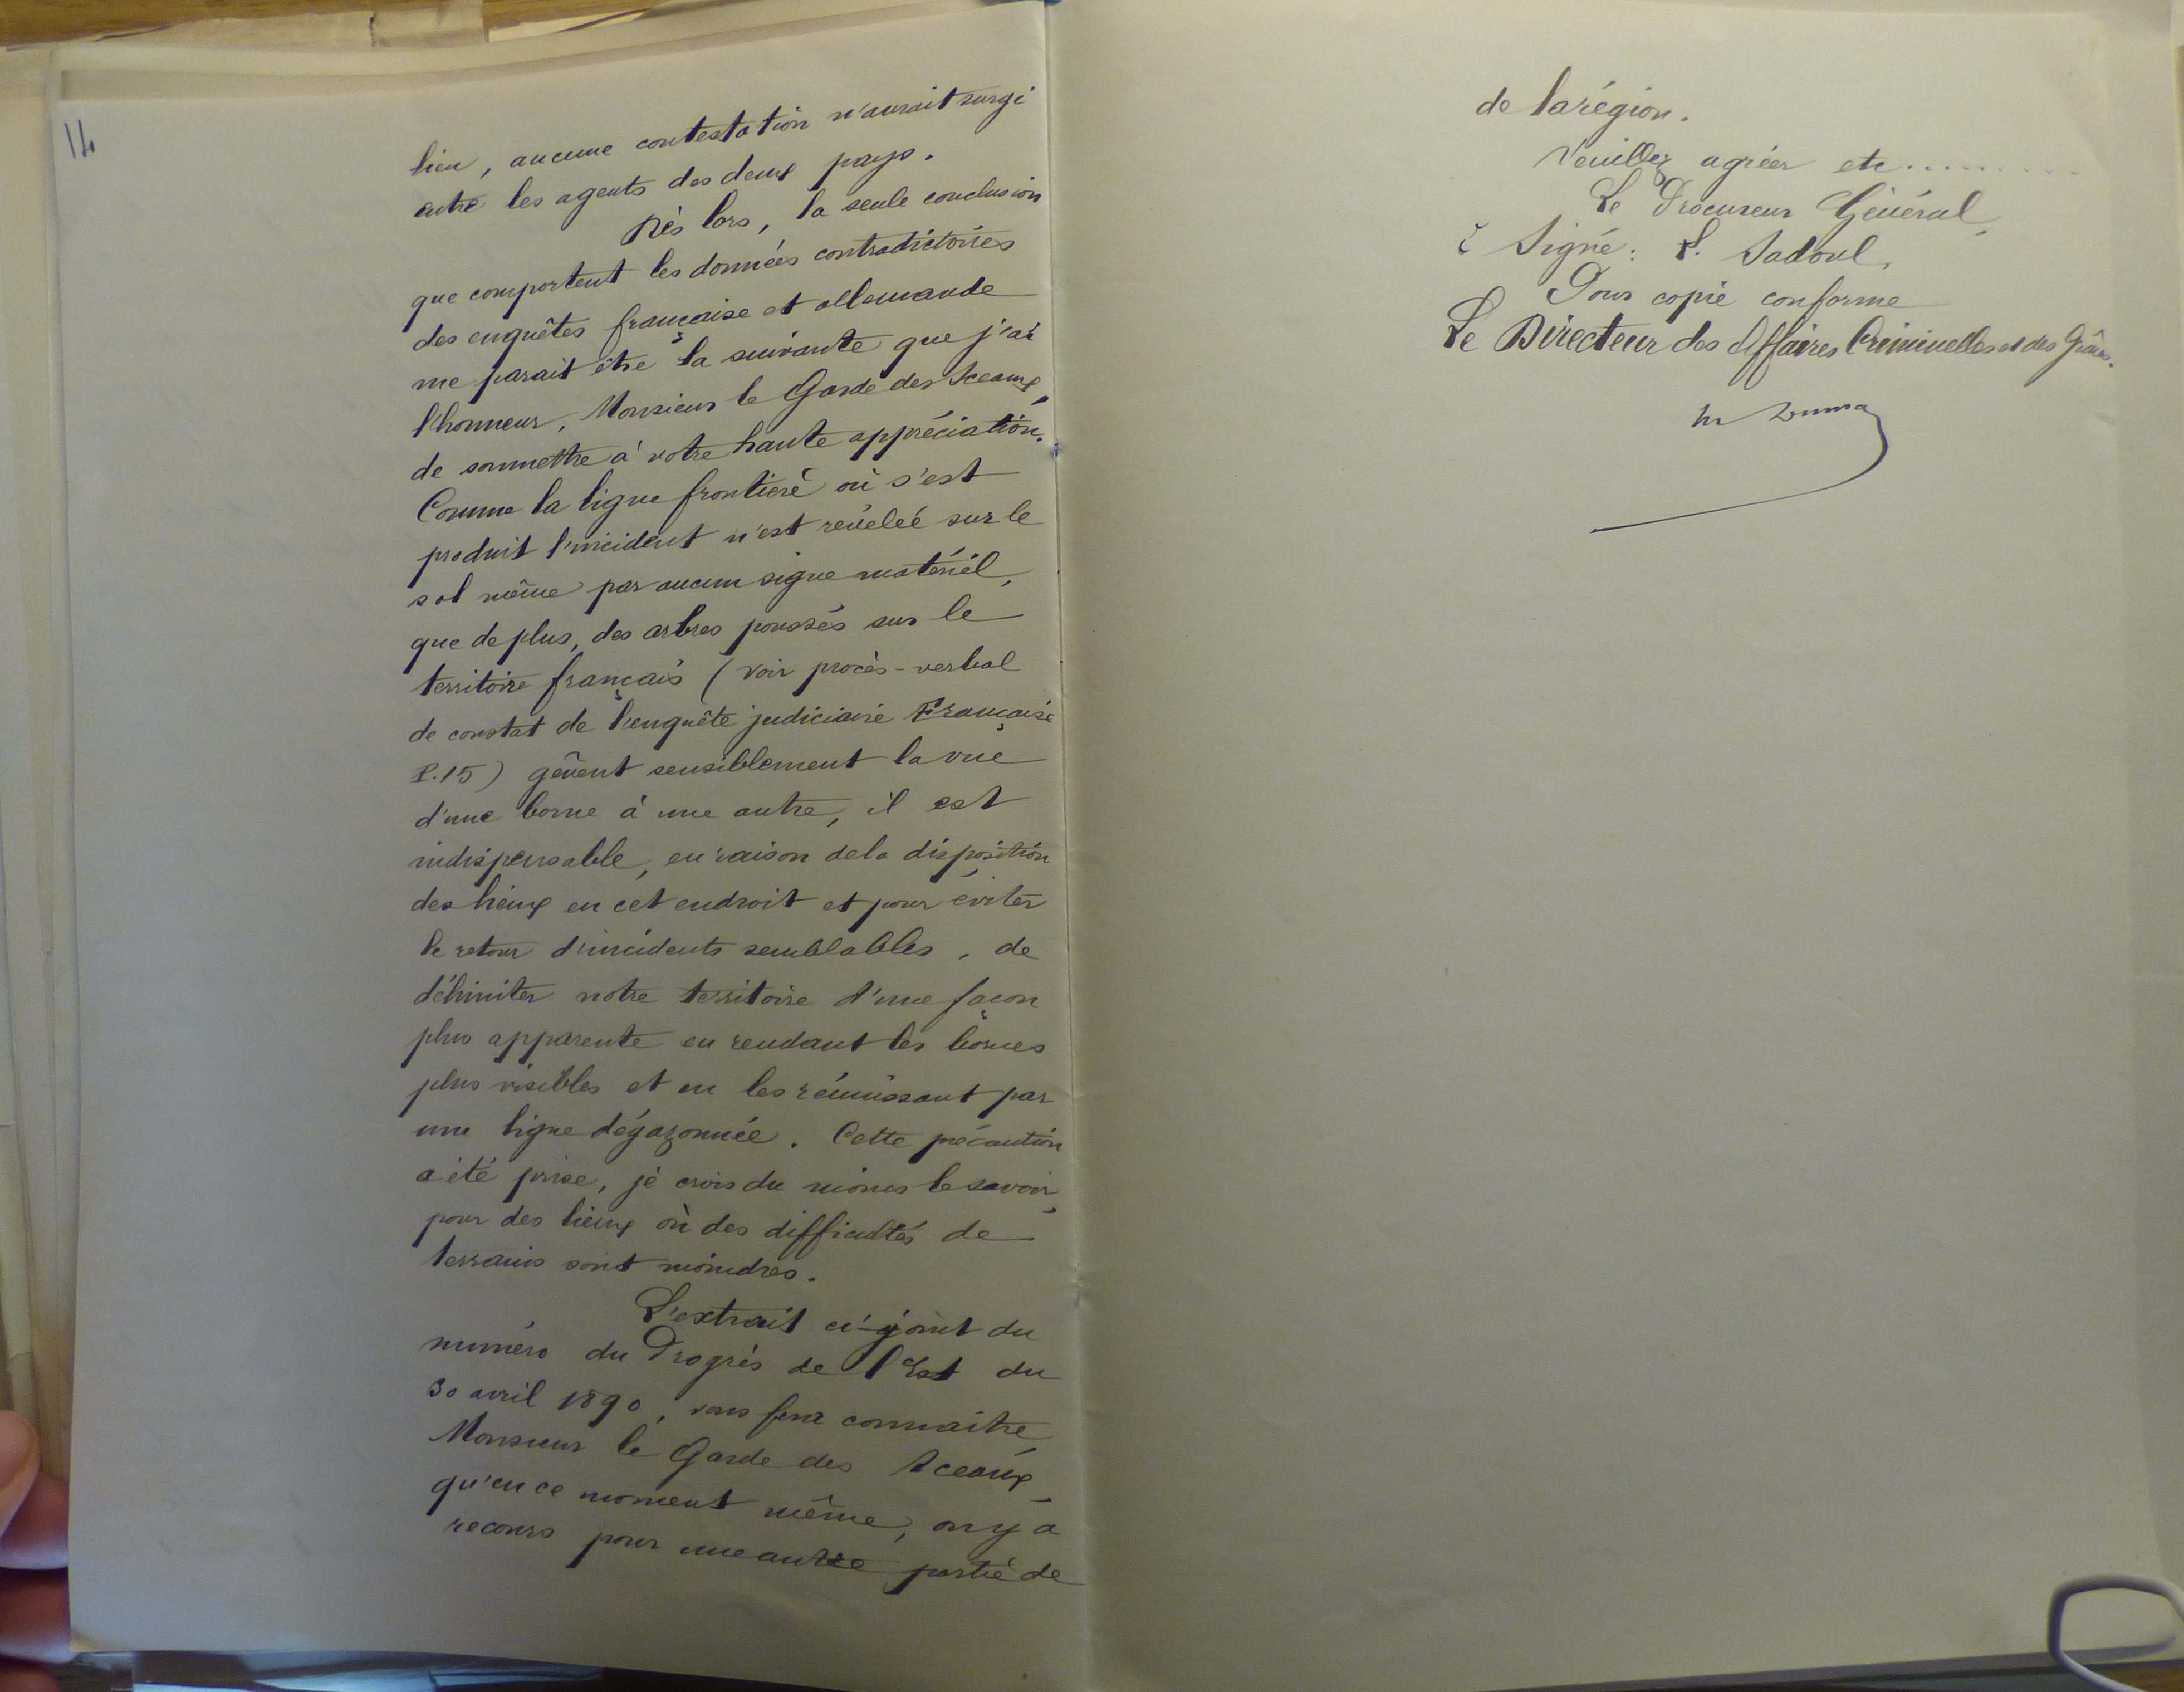 14
lieu, aucune contestation n'aurait surgi
entre les agents des deux pays.
Dès lors, la seule conclusion
que comportent les données contradictoires
des enquêtes française et allemande
me parait être la suivante que j'ai
l'honneur, Monsieur le Garde des Sceaux,
de soumettre à votre haute appréciation.
Comme la ligne frontière où s'est
produit l'incident n'est révélée sur le
sol même par aucun signe matériel,
que de plus, des arbres poussés sur le
territoire français (voir procès-verbal
de constat de l'enquête judiciaire Française
P.15) gênent sensiblement la vue
d'une borne à une autre, il est
indispensable, en raison de la disposition
des lieux en cet endroit et pour éviter
le retour d'incidents semblables, de
délimiter notre territoire d'une façon
plus apparente en rendant les bornes
plus visibles et en les réunissant par
une ligne dégazonnée. Cette précaution
a été prise, je crois du moins le savoir,
pour des lieux où des difficultés de
terrains sont moindres.
L'extrait ci-joint du
numéro du Progrès de l'Est du
30 avril 1890, vous fera connaitre,
Monsieur le Garde des Sceaux,
qu'en ce moment même, on y a
recours pour une autre partie de
de la région.
Veuillez agréer etc.........
Le Procureur Général,
Signé: L. Sadoul.
Pour copie conforme
Le Directeur des Affaires Criminelles et des Grâces.